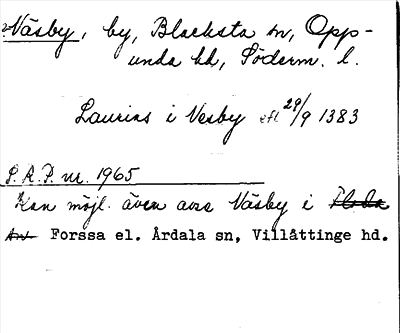 Väsby, by, Blacksta sn, Opp-
unda hd, Söderm. l.
Laurins i Vesby efl 29/9 1383
S.R.P. nr. 1965
Kan möjl. även avse Väsby i Floda
Forssa el. Årdala sn, Villåttinge hd.